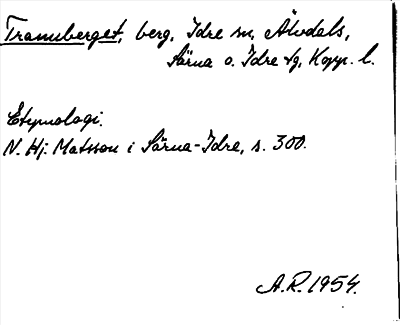 Tranuberget, berg, Idre sn, Älvdals,
Särna o. Idre tg, Kopp. l.
Etymologi.
N. Hj. Matsson i Särna-Idre, s. 300.
A.R. 1954.